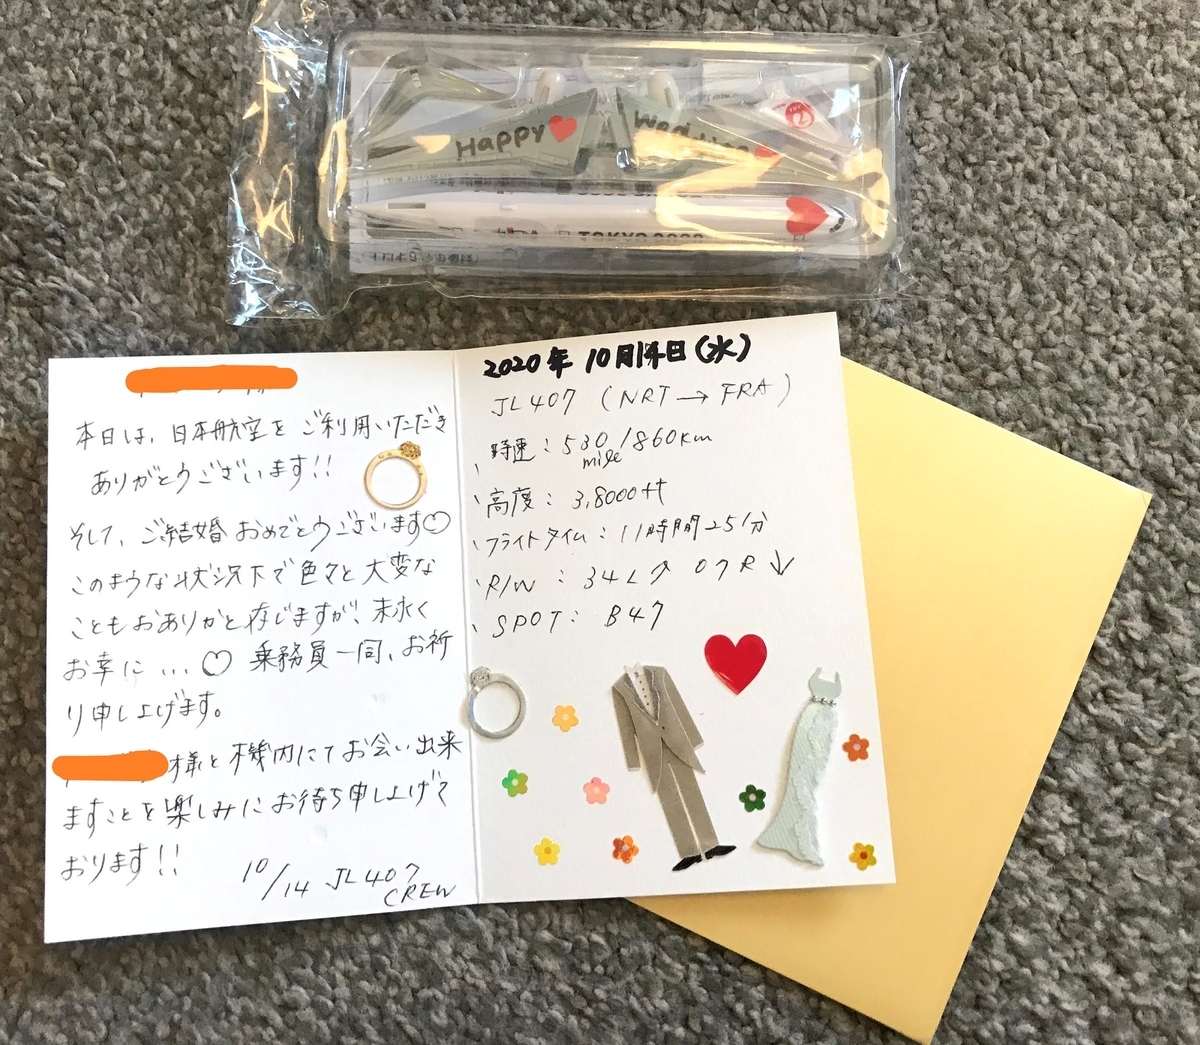 Happy
Wedding
TOKYO 2020
本日は、日本航空をご利用いただき
ありがとうございます!!
そして、ご結婚おめでとうございます♡
このような状況下で色々と大変な
こともおありかと存じますが、末永く
お幸に…♡ 乗務員一同、お祈
り申し上げます。
様と機内にてお会い出来
ますことを楽しみにお待ち申し上げて
おります!!
10/14 JL407
CREW
2020年 10月14日(水)
JL407 (NRT→FRA)
、時速:530mile/860km
、高度:3,8000ft
、フライトタイム:11時間25分
、R/W:34L↗ 07R↘
、SPOT:B47